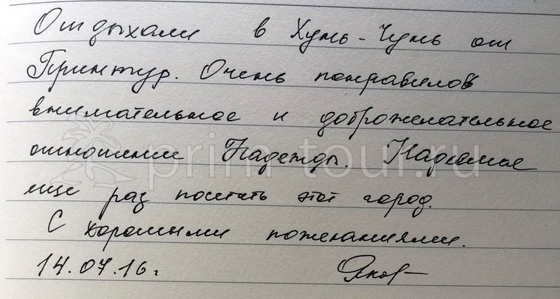 Отдыхали в Хунь-Чунь от
Примтур. Очень понравилось
внимательное и доброжелательное
отношение Надежды. Надеемся
еще раз посетить этот город.
С хорошими пожеланиями.
14.07.16г.
prim-tour.ru